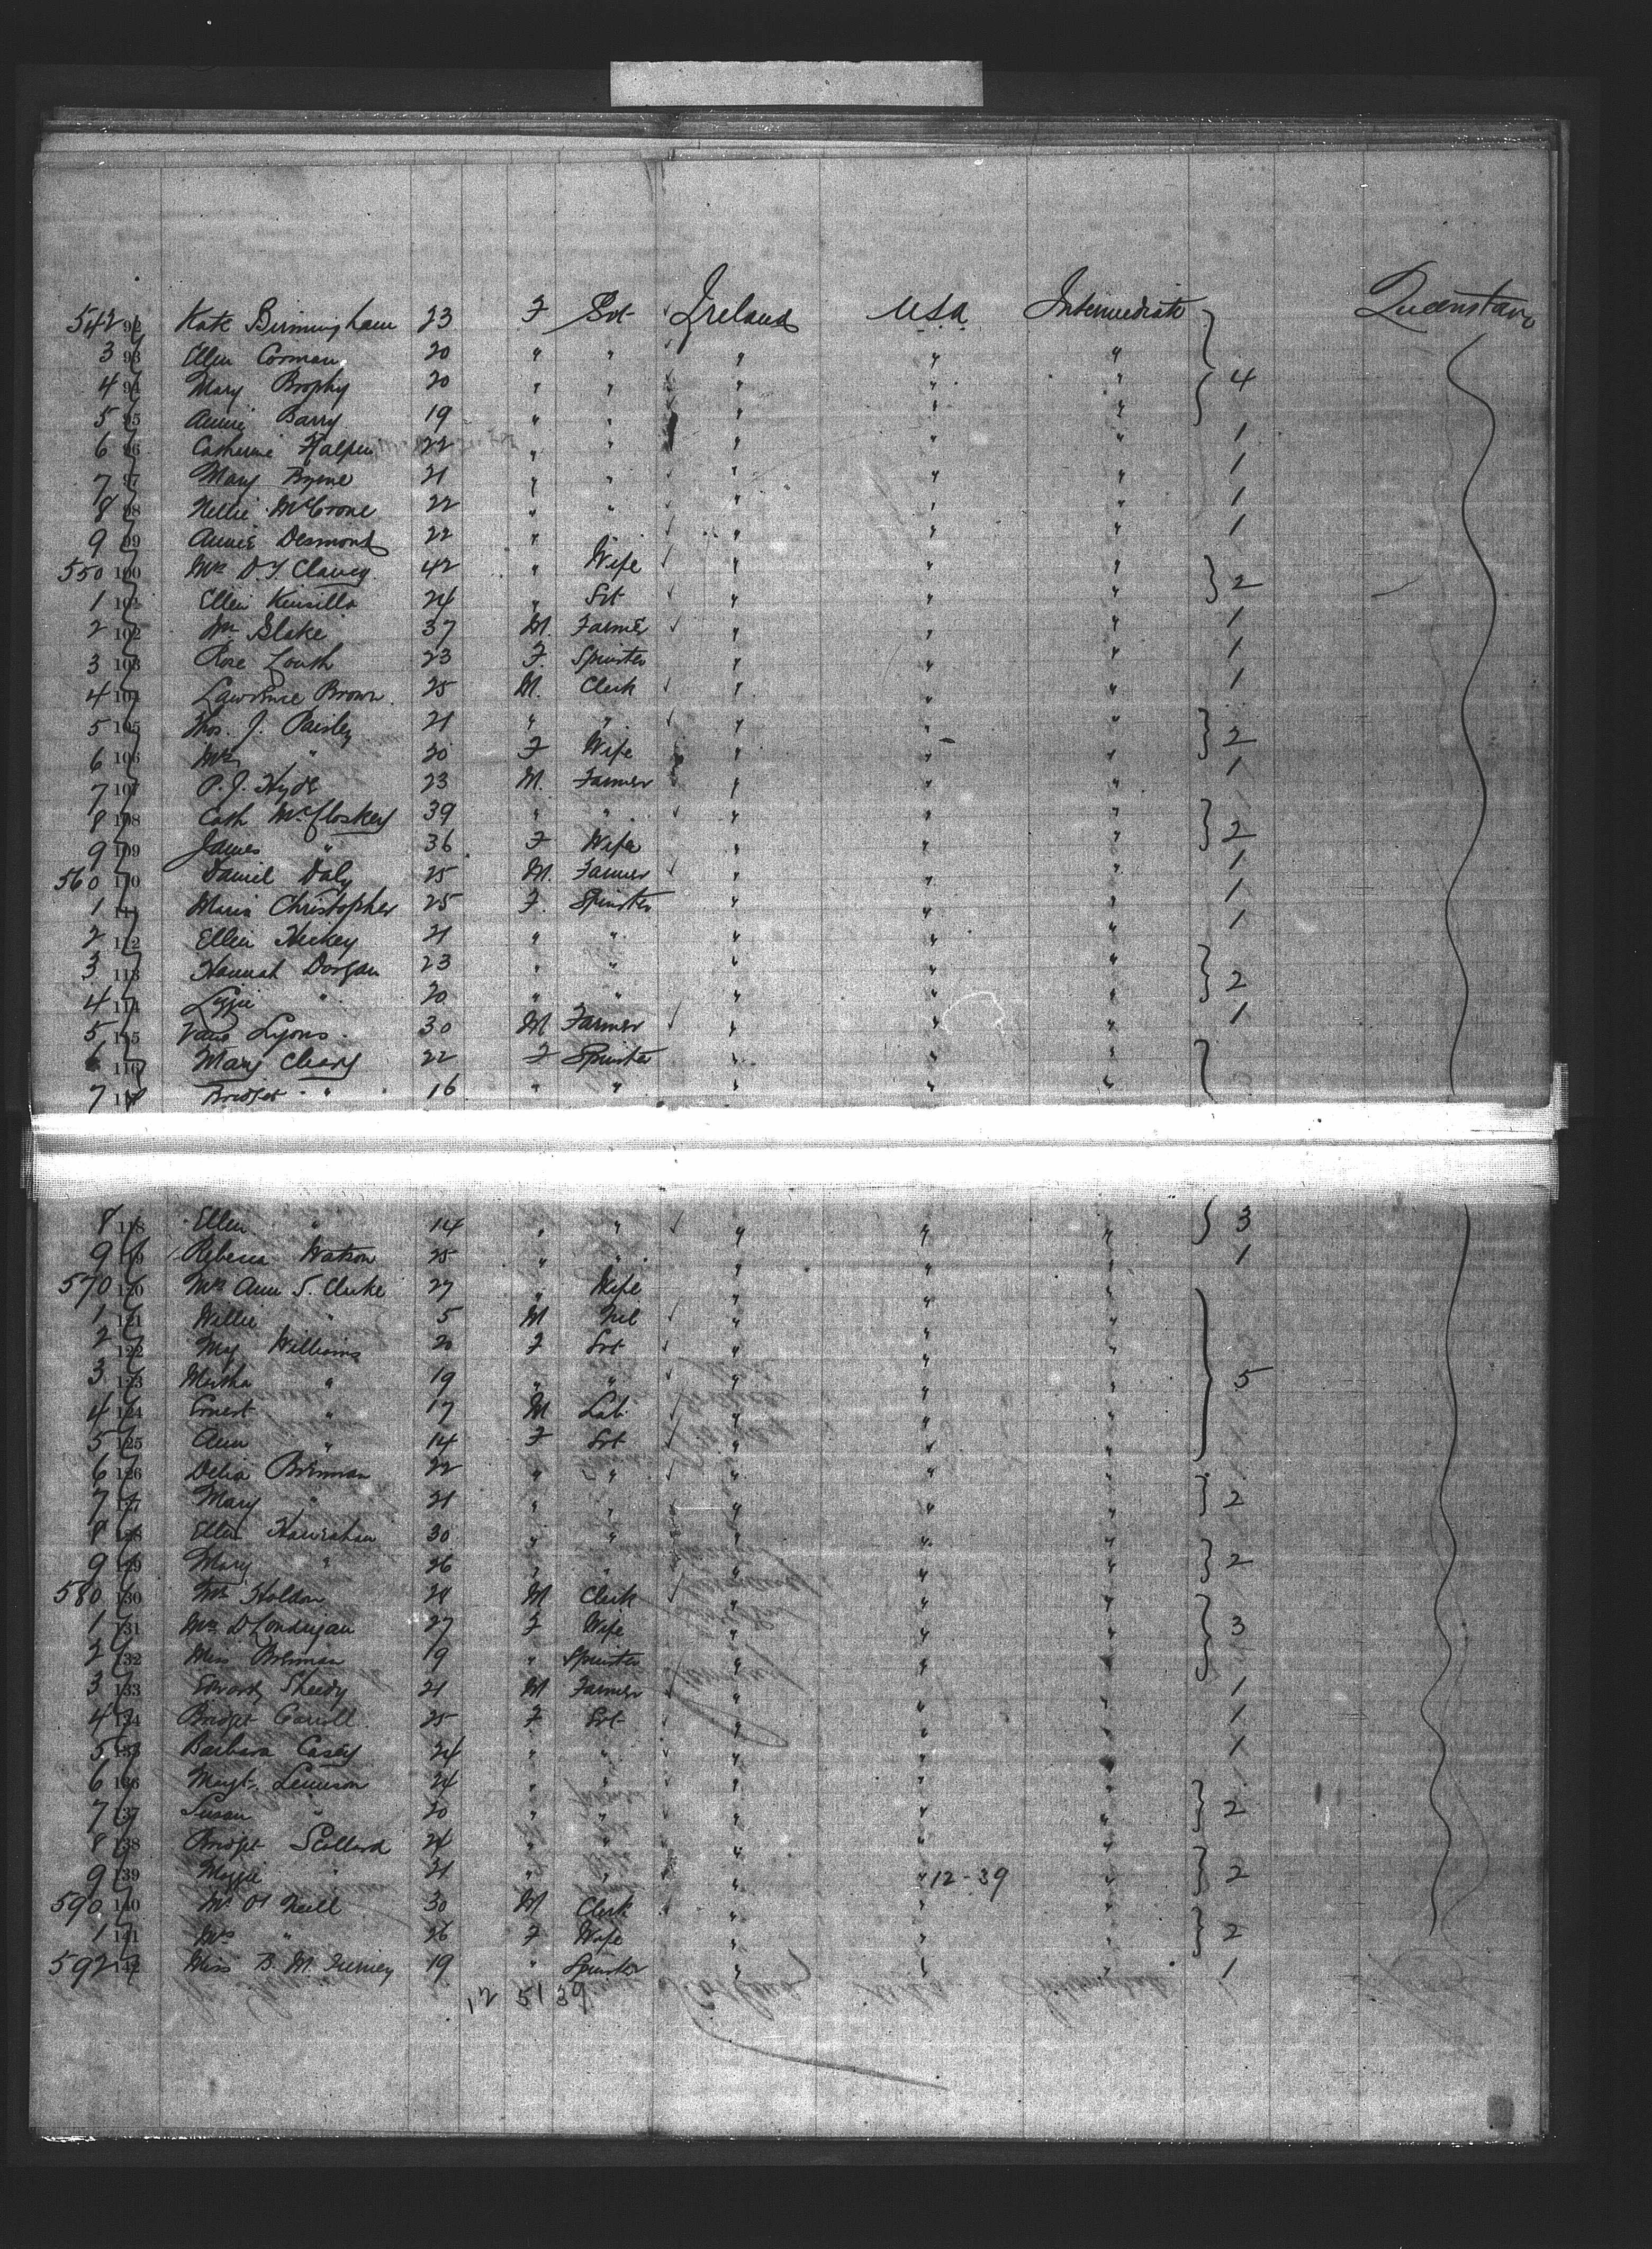 542 92 Kate Birmingham 23 F Svt Ireland USA Intermediate Queenstown
3 93 Ellen Gorman 20 " " " " "
4 94 Mary Brophy 20 " " " " " 4
5 95 Annie Barry 19 " " " " "
6 96 Catherine Halpin 22 " " " " " 1
7 97 Mary Byrne 21 " " " " " 1
8 98 Nellie McCrone 22 " " " " " 1
9 99 Annie Desmond 22 " " " " " 1
550 100 Mrs D. J. Clancy 42 " Wife " " "
1 101 Ellen Kinsilla 24 " Svt " " " 2
2 102 Mr Blake 37 M. Farmer " " " 1
3 103 Rose Louth 23 F. Spinster " " " 1
4 104 Lawrence Brown 25 M. Clerk " " " 1
5 105 Thos. J. Paisley 21 " " " " "
6 106 Mrs " 20 F Wife " " " 2
7 107 P. J. Hyde 23 M. Farmer " " " 1
8 108 Cath McCloskey 39 " " " " "
9 109 James " 36 F Wife " " " 2
560 110 Daniel Daly 25 M. Farmer " " " 1
1 111 Maria Christopher 25 F. Spinster " " " 1
2 112 Ellen Hickey 21 " " " " " 1
3 113 Hannah Dorgan 23 " " " " "
4 114 Lizzie " 20 " " " " " 2
5 115 Lyons 30 M Farmer " " " 1
6 116 Mary Cleary 22 F Spinster " " "
7 117 Bridget " 16 " " " " "
8 118 Ellen " 14 " " " " " 3
9 119 Rebecca Watson 25 " " " " " 1
570 120 Mrs Ann S. Clarke 27 " Wife " " "
1 121 Willie " 5 M Nil " " "
2 122 May Williams 20 F Svt " " "
3 123 Martha " 19 " " " " " 5
4 124 Ernest " 17 M Lab. " " "
5 125 Ann " 14 F Svt " " "
6 126 Delia Brennan 22 " " " " "
7 127 Mary " 21 " " " " " 2
8 128 Ellen Hanrahan 30 " " " " "
9 129 Mary " 26 " " " " " 2
580 130 Mr Holdon 28 M Clerk " " "
1 131 Mrs D Londrigan 27 F Wife " " " 3
2 132 Miss Brennan 19 " Spinster " " "
3 133 Edward Sheedy 21 M Farmer " " " 1
4 134 Bridget Carroll 25 F Svt " " " 1
5 135 Barbara Casey 24 " " " " " 1
6 136 Margt. Lennon 24 " " " " "
7 137 Susan " 20 " " " " " 2
8 138 Bridget Scollard 24 " " " " "
9 139 Maggie " 21 " " " " 12-39 " 2
590 140 Mr O'Neill 30 M Clerk " " "
1 141 Mrs " 26 F Wife " " " 2
592 142 Miss B. M. Tierney 19 " Spinster " " " 1
12 51 39